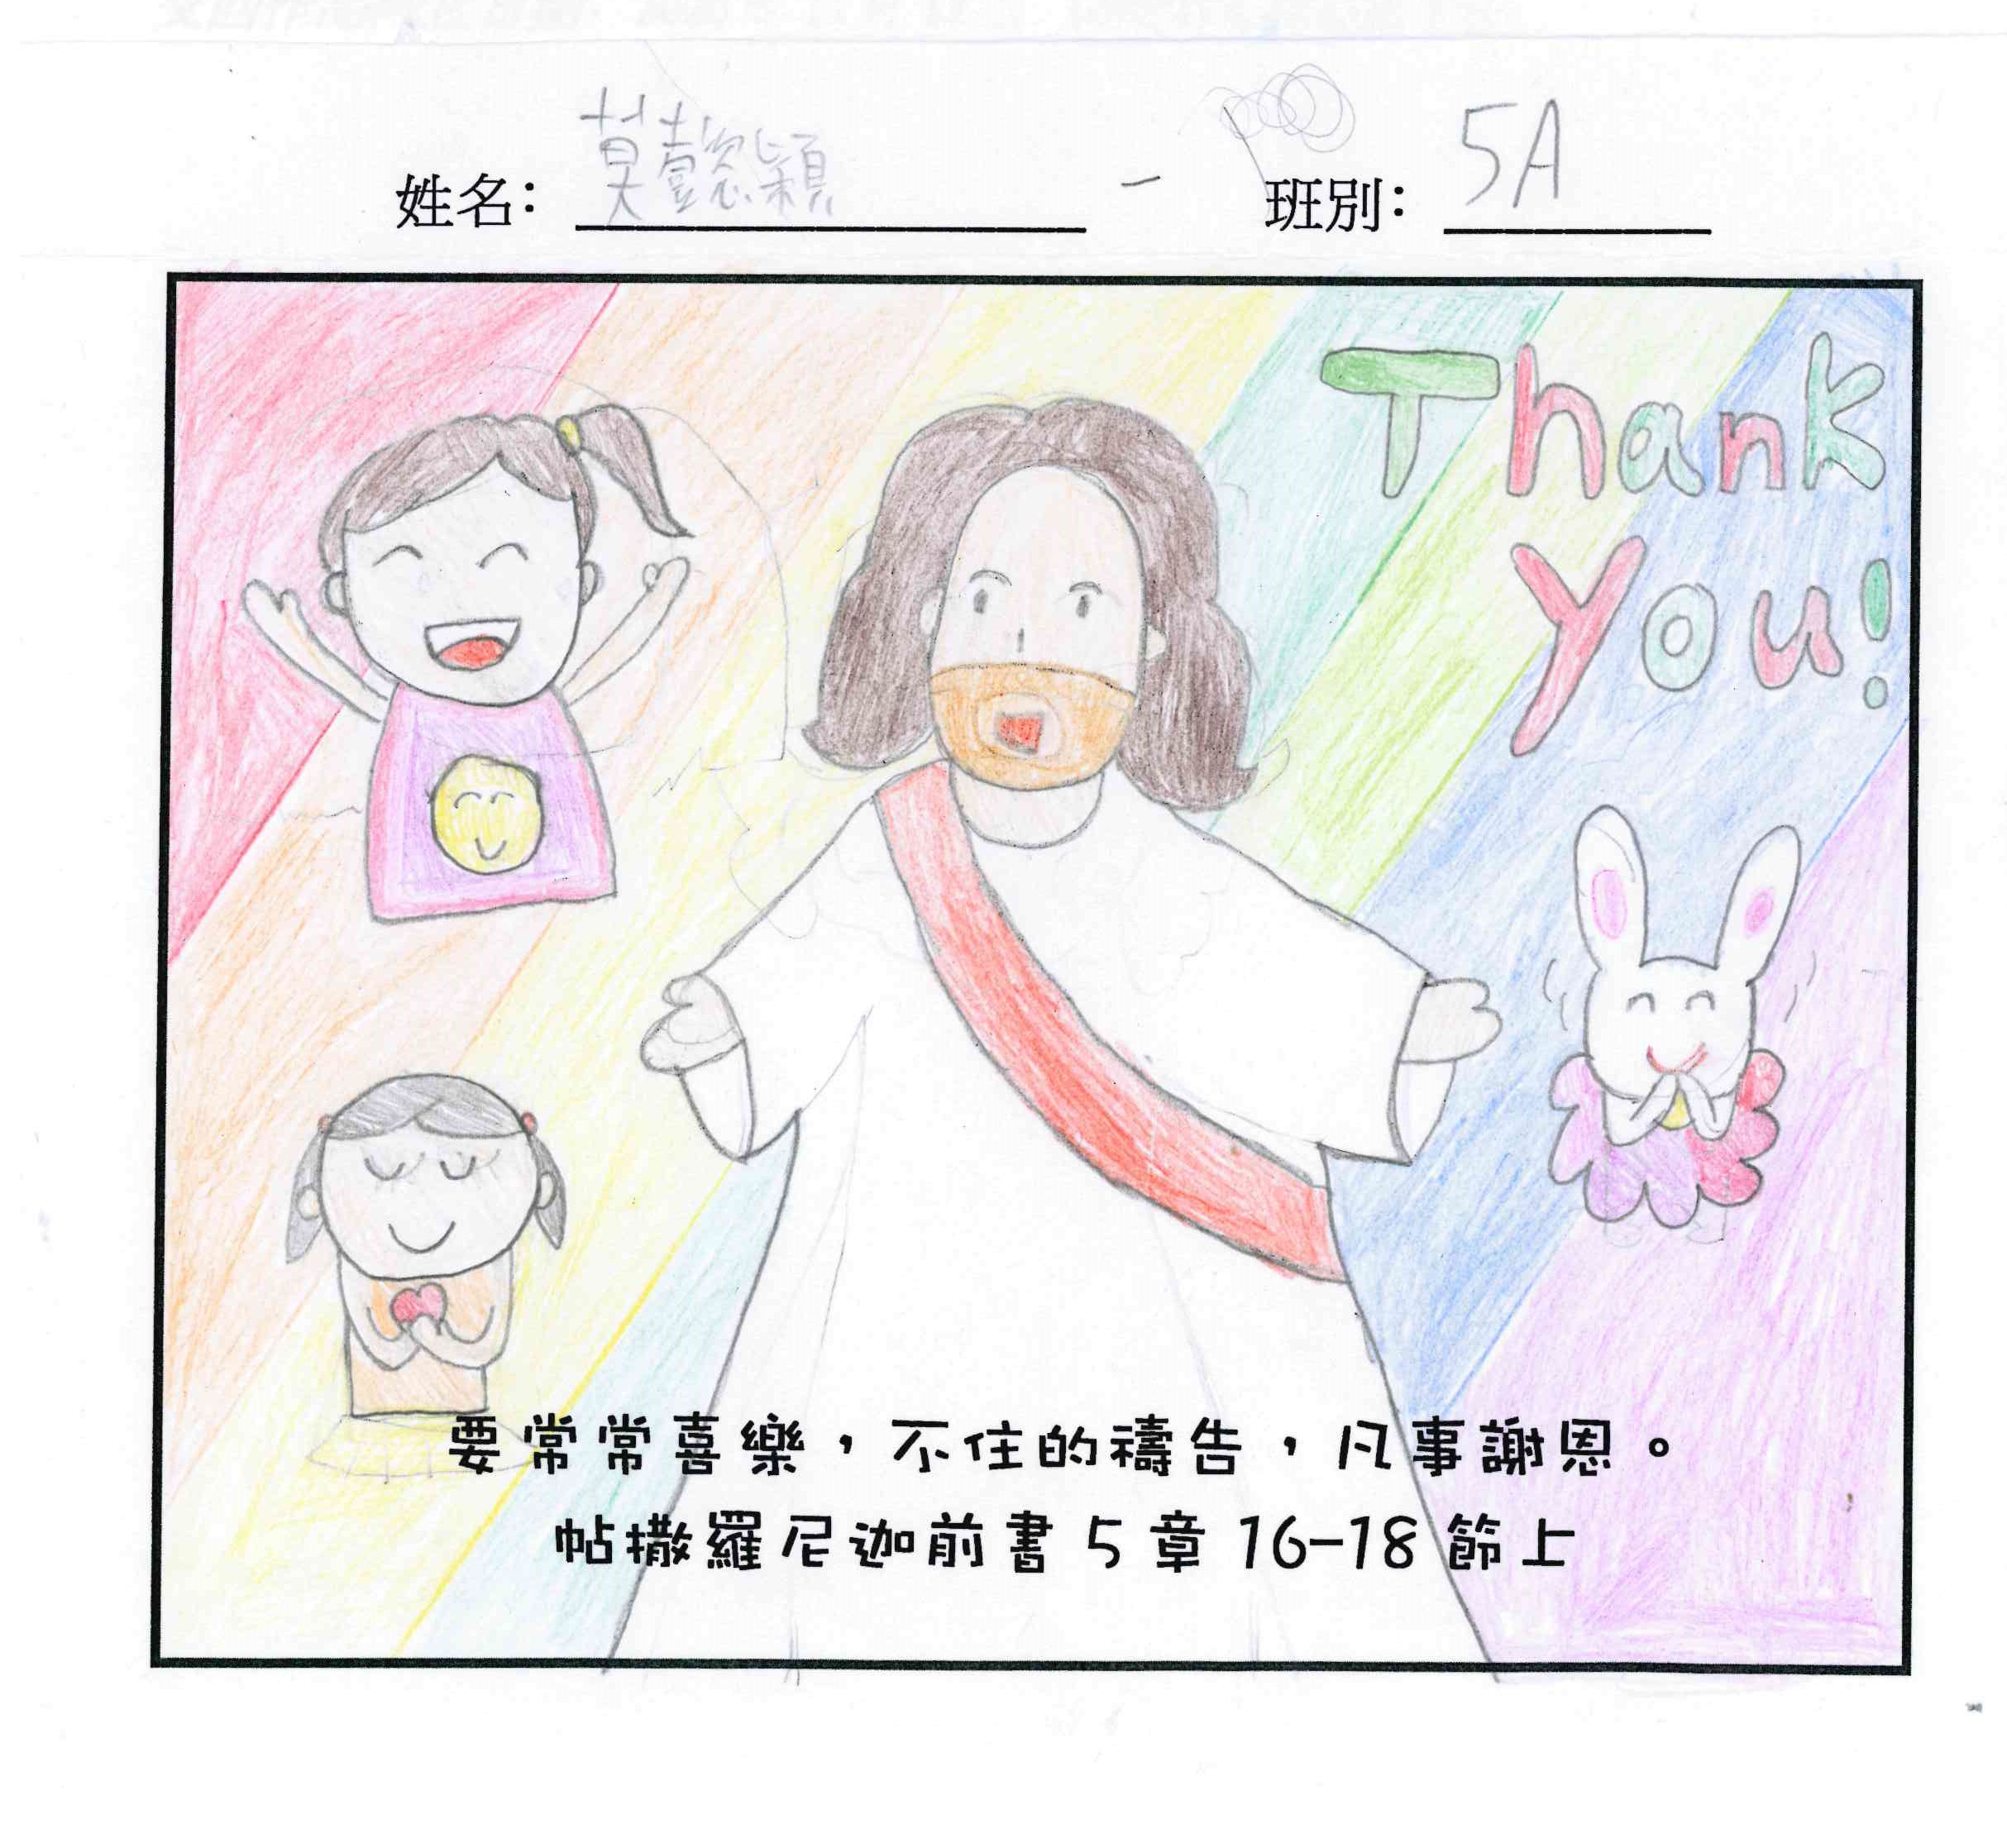 姓名： 莫懿穎 班別： 5A
Thank
you!
要常常喜樂，不住的禱告，凡事謝恩。
帖撒羅尼迦前書 5 章 16-18 節上